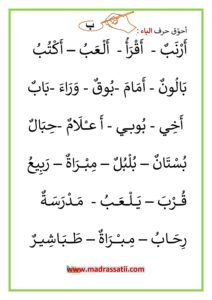 أحوّق حرف الباء : ب
أَرْنَبٌ - أَقْرَأُ - أَلْعَبُ – أَكْتُبُ
بَالُونٌ - أَمَامَ -بُوقٌ - وَرَاءَ -بَابٌ
أَخِي - بُوبِي - أَعْلَامٌ -حِبَالٌ
بُسْتَانٌ – بُلْبُلٌ – مِبْرَاةٌ – رَبِيعُ
قُرْبَ – يَلْعَبُ - مَدْرَسَةٌ
رِحَابُ – مِبْرَاةٌ – طَبَاشِيرٌ
www.madrassatii.com